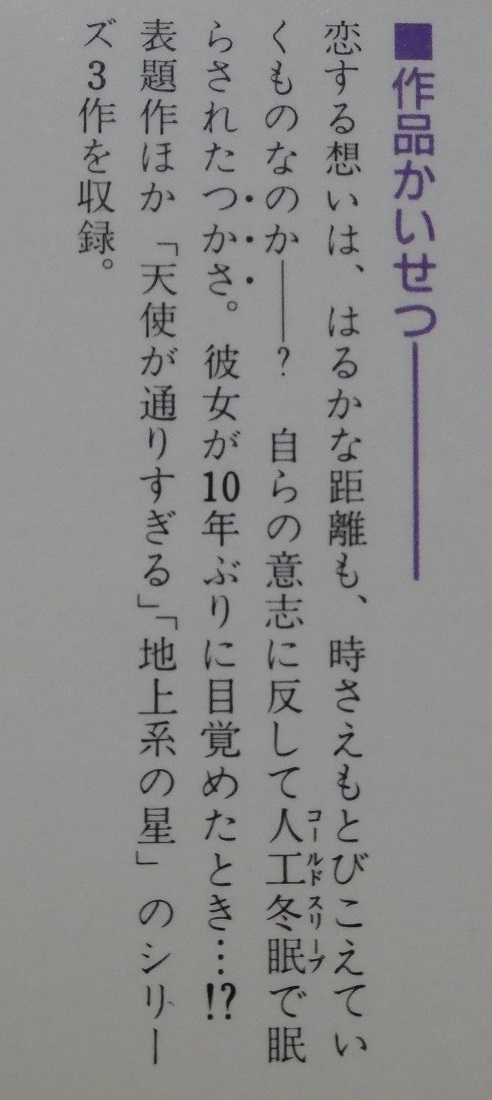 ■作品かいせつ
恋する想いは、はるかな距離も、時さえもとびこえてい
くものなのか――？　自らの意志に反して人工冬眠で眠
コールドスリープ
らされたつかさ。彼女が10年ぶりに目覚めたとき…!?
表題作ほか「天使が通りすぎる」「地上系の星」のシリー
ズ3作を収録。